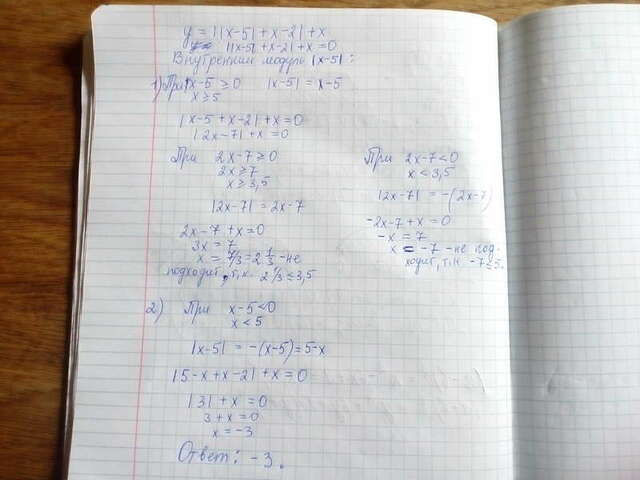 y = ||x-5|+x-2|+x
||x-5|+x-2|+x=0
Внутренний модуль |x-5|:
1) При x-5≥0 |x-5|=x-5
x≥5
|x-5+x-2|+x=0
|2x-7|+x=0
При 2x-7≥0
2x≥7
x≥3,5
|2x-7|=2x-7
2x-7+x=0
3x=7
x=7/3=2 1/3 -не
подходит, т.к. 2 1/3≤3,5
При 2x-7<0
x<3,5
|2x-7|=-(2x-7)
-2x-7+x=0
-x=7
x=-7 -не под-
ходит, т.к -7≤5.
2) При x-5<0
x<5
|x-5|=-(x-5)=5-x
|5-x+x-2|+x=0
|3|+x=0
3+x=0
x=-3
Ответ: -3.